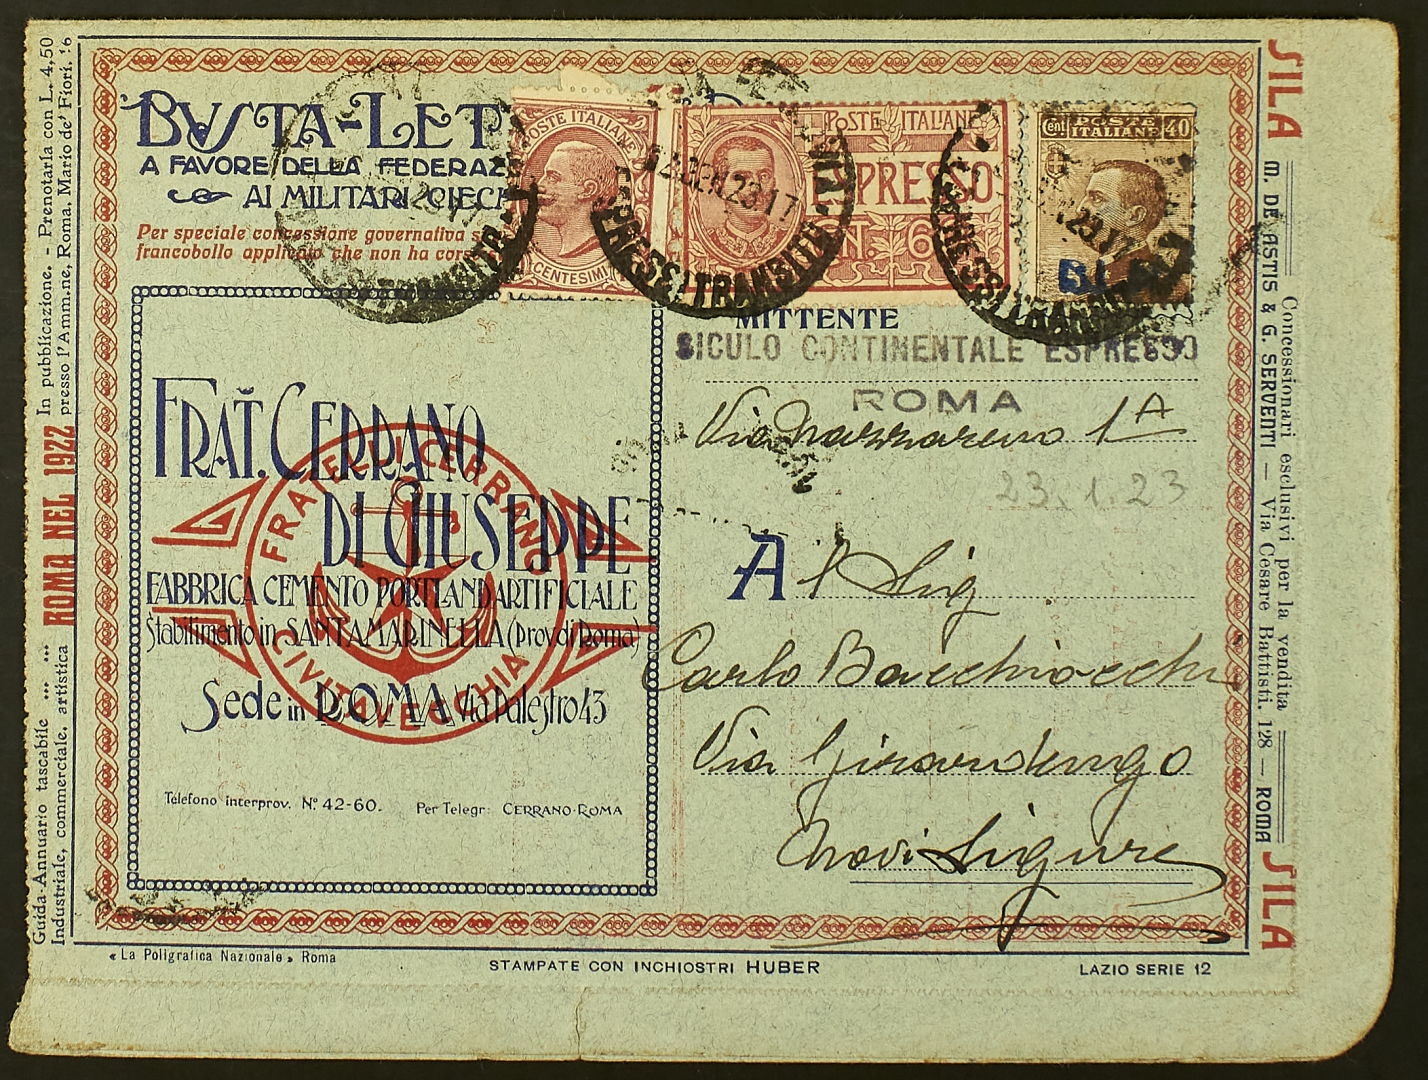 BUSTA-LET
A FAVORE DELLA FEDERAZ
AI MILITARI CIECH
Per speciale concessione governativa s
francobollo applicato che non ha cors
POSTE ITALIANE
CENTESIMI
POSTE ITALIANE
ESPRESSO
CENT. 6
Cent POSTE ITALIANE 40
B.L.P.
ESPRESSI TRANSITO
23.17
MITTENTE
SICULO CONTINENTALE ESPRESSO
ROMA
Via Nazzareno 1A
23.1.23
A l Sig
Carlo Bacchiocchi
Via Girardengo
Novi Ligure
FRAT. CERRANO
DI GIUSEPPE
FABBRICA CEMENTO PORTLAND ARTIFICIALE
Stabilimento in SANTA MARINELLA (Prov. di Roma)
Sede in ROMA Via Palestro 43
FRATELLI CERRANO
CIVITAVECCHIA
Telefono interprov. N° 42-60. Per Telegr: CERRANO-ROMA
Guida-Annuario tascabile ... ... ROMA NEL 1922 In pubblicazione. - Prenotarla con L. 4,50
Industriale, commerciale, artistica presso l'Amm.ne, Roma, Mario de' Fiori, 16
SILA Concessionari esclusivi per la vendita SILA
M. DE ASTIS & G. SERVENTI — Via Cesare Battisti, 128 — ROMA
« La Poligrafica Nazionale » Roma
STAMPATE CON INCHIOSTRI HUBER
LAZIO SERIE 12